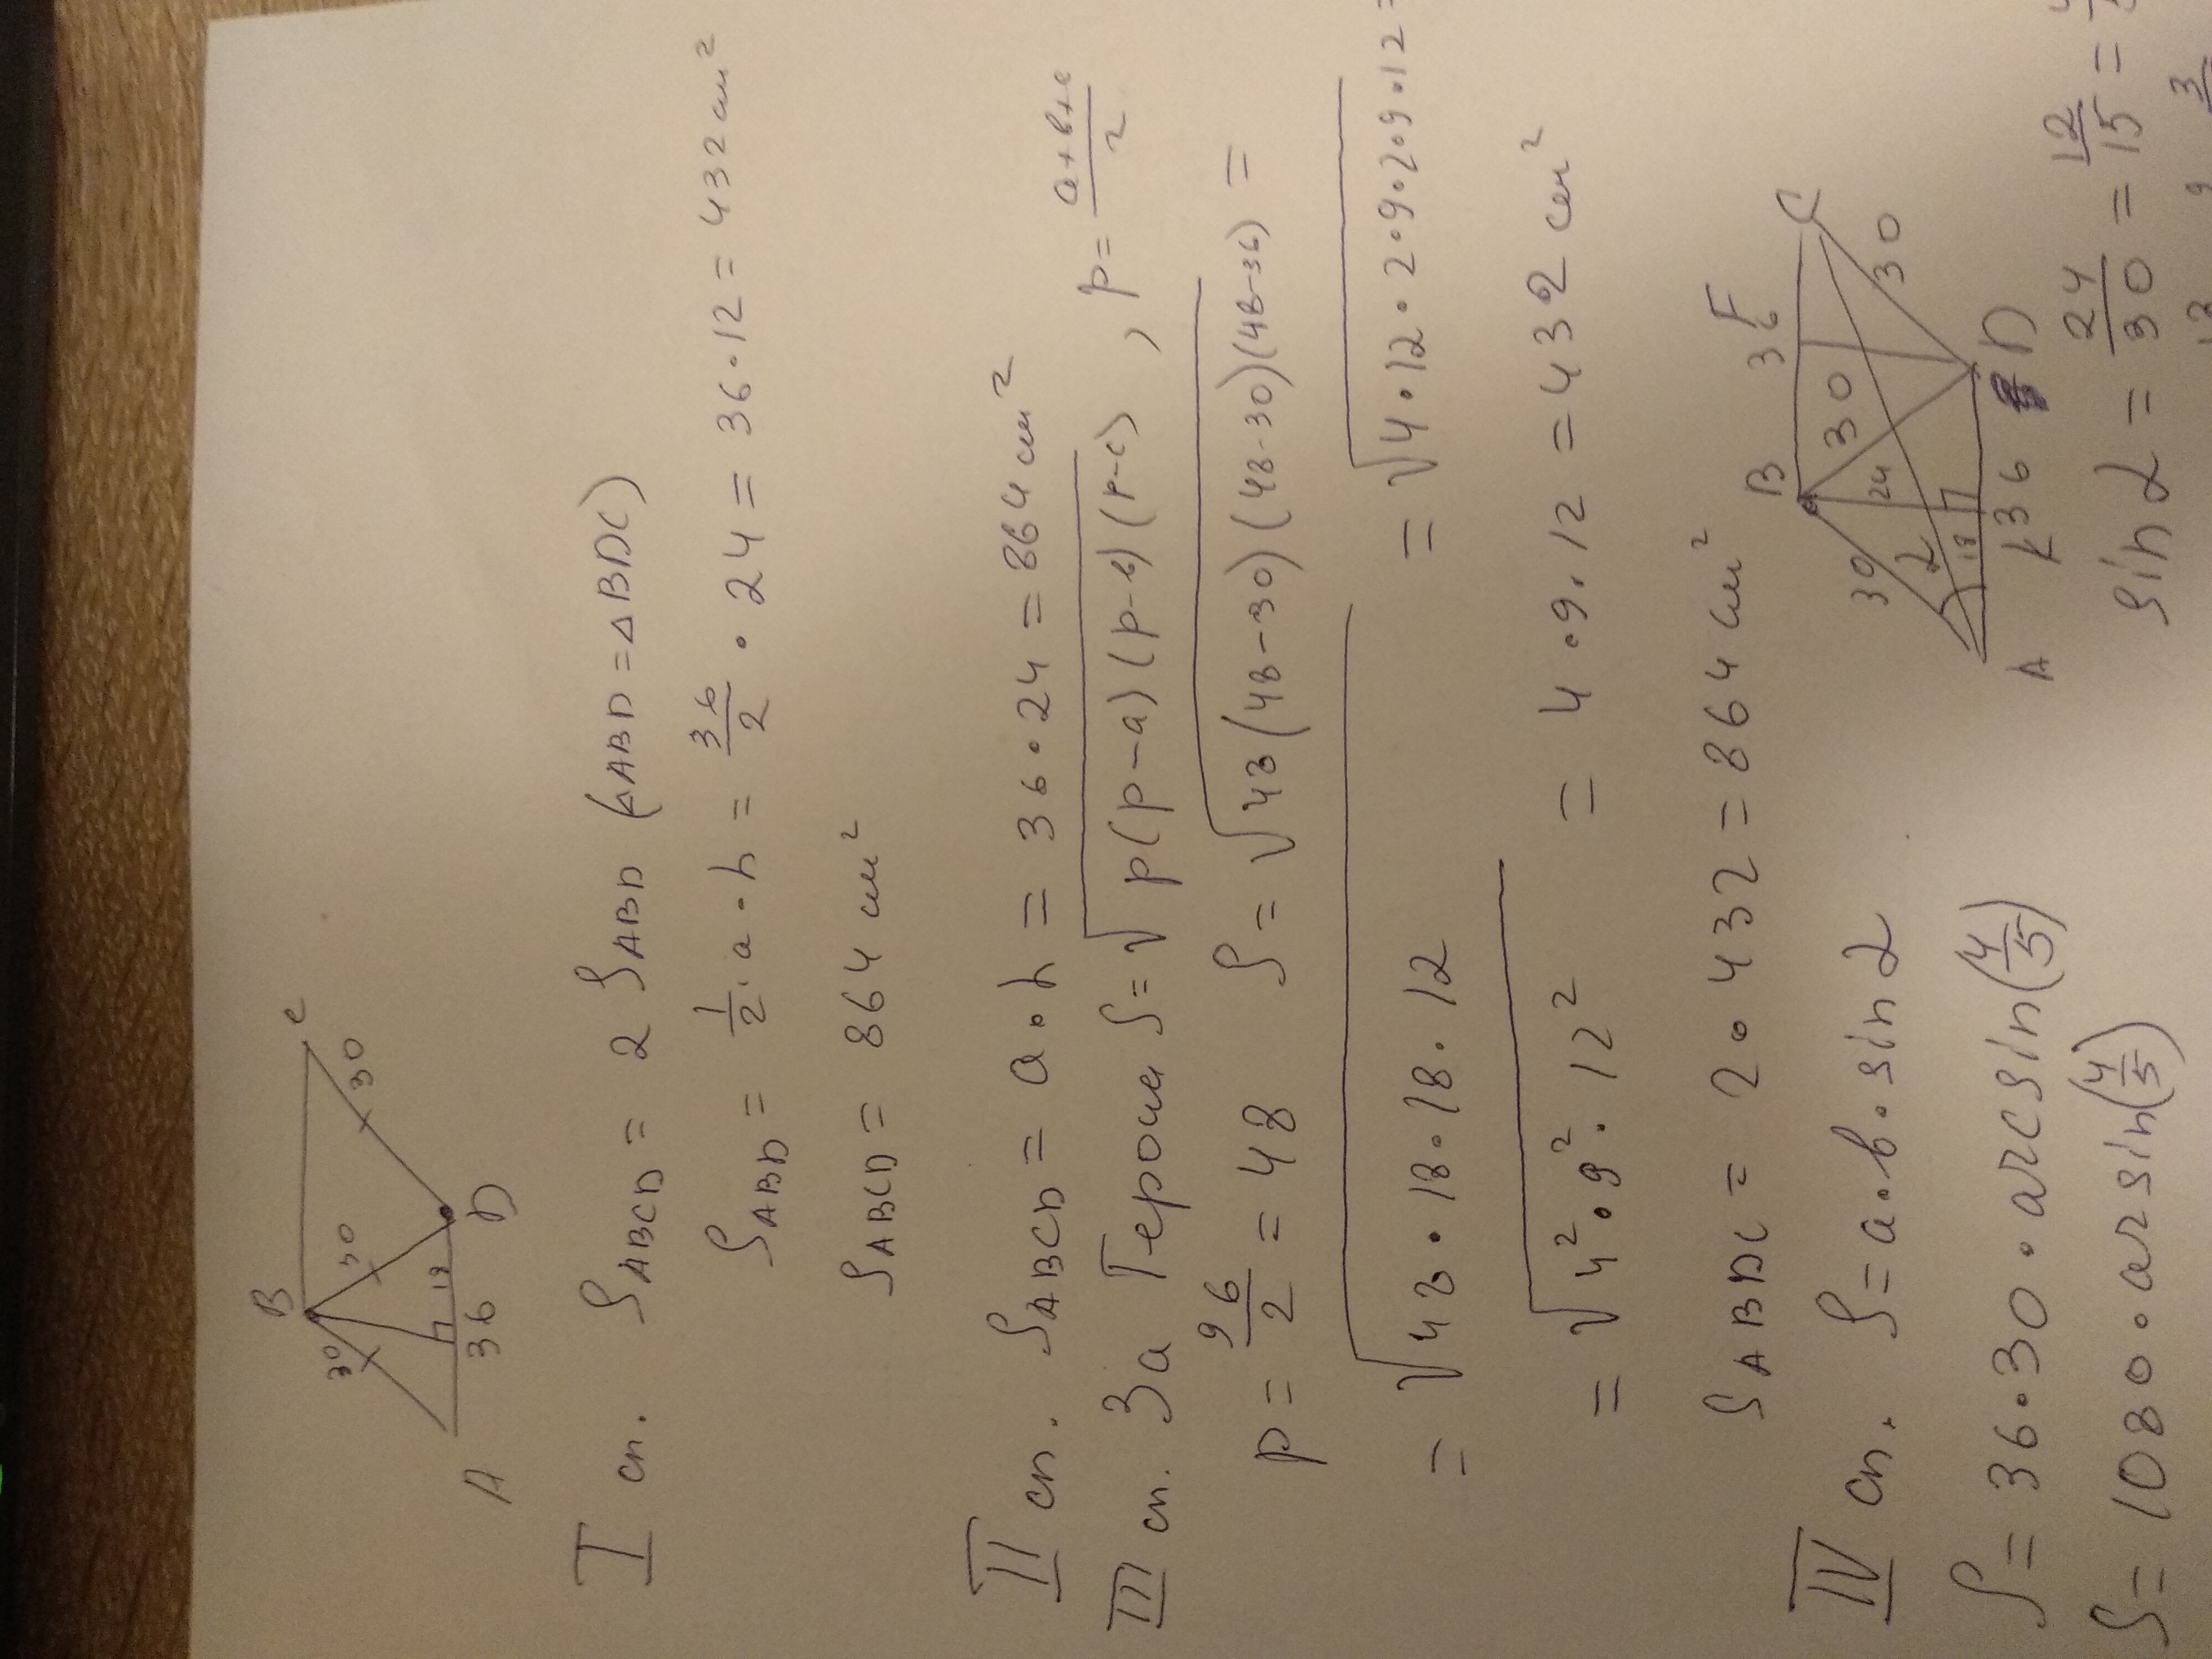 B
C
30
30
30
18
36
A
D
I сп. S_ABCD = 2 S_ABD (△ABD = △BDC)
S_ABD = 1/2 · a · h = 36/2 · 24 = 36 · 12 = 432 см²
S_ABCD = 864 см²
II сп. S_ABCD = a · h = 36 · 24 = 864 см²
III сп. За Героном S = √p(p-a)(p-b)(p-c) , p = a+b+c/2
p = 96/2 = 48 S = √48(48-30)(48-30)(48-36) =
= √48 · 18 · 18 · 12 = √4 · 12 · 2 · 9 · 2 · 9 · 12 =
= √4² · 9² · 12² = 4 · 9 · 12 = 432 см²
S_ABDC = 2 · 432 = 864 см²
IV сп. S = a · b · sin α
B
36
F
C
30
30
24
30
α
18
A
K
36
D
S = 36 · 30 · arcsin(4/5)
sin α = 24/30 = 12/15 =
S = 1080 · arsin(4/5)